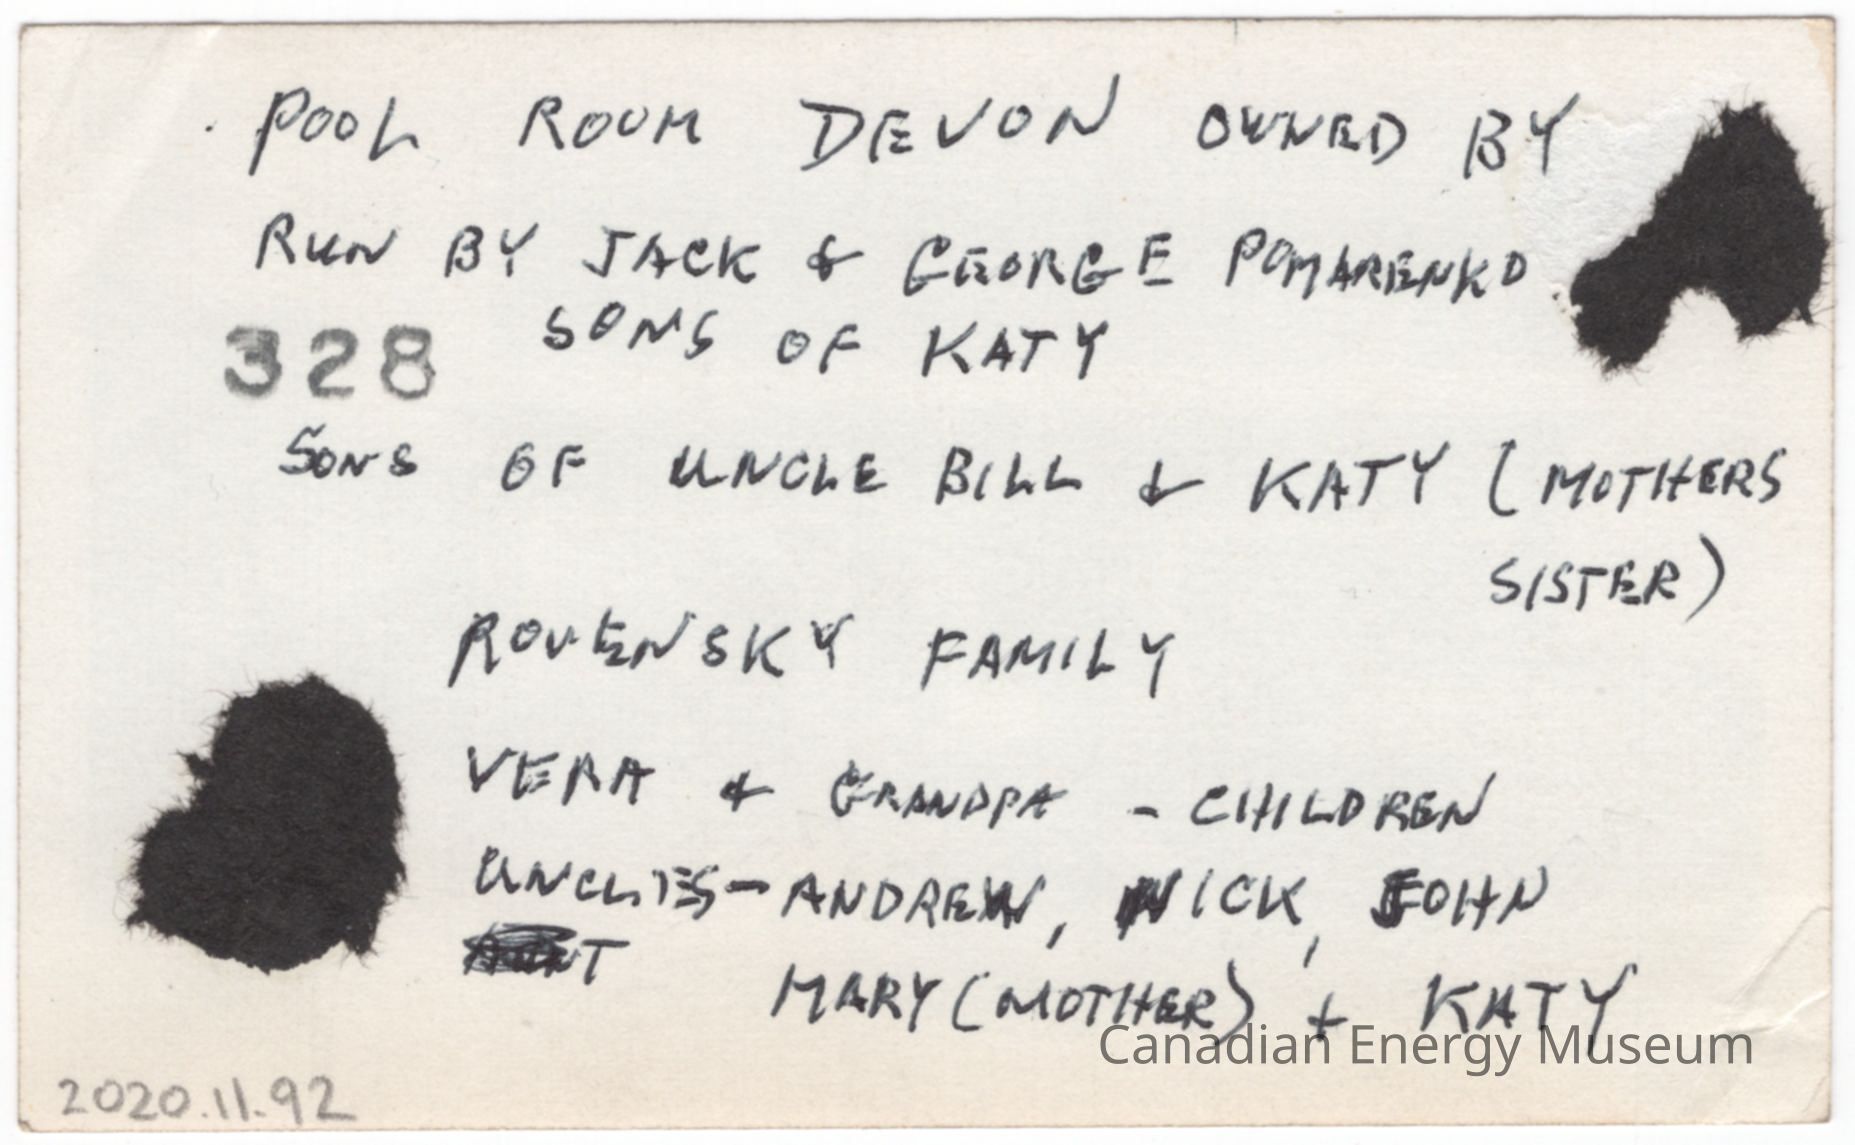 POOL ROOM DEVON OWNED BY
RUN BY JACK & GEORGE POMARENKO
SONS OF KATY
328
SONS OF UNCLE BILL & KATY (MOTHERS
SISTER)
ROVENSKY FAMILY
VERA & GRANDPA - CHILDREN
UNCLES - ANDREW, NICK, JOHN
MARY (MOTHER) + KATY
Canadian Energy Museum
2020.11.92